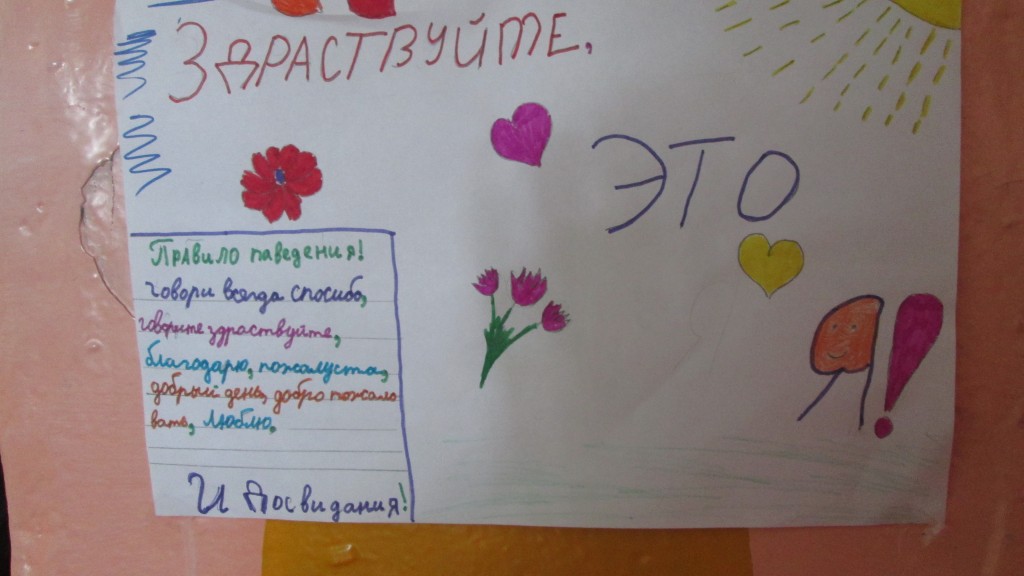 ЗДРАСТВУЙТЕ,
ЭТО
Я!
Правило паведения!
Говори всегда спосибо,
говорите здраствуйте,
благодарю, пожалуста,
добрый день, добро пожало
вать, люблю,
И досвидания!